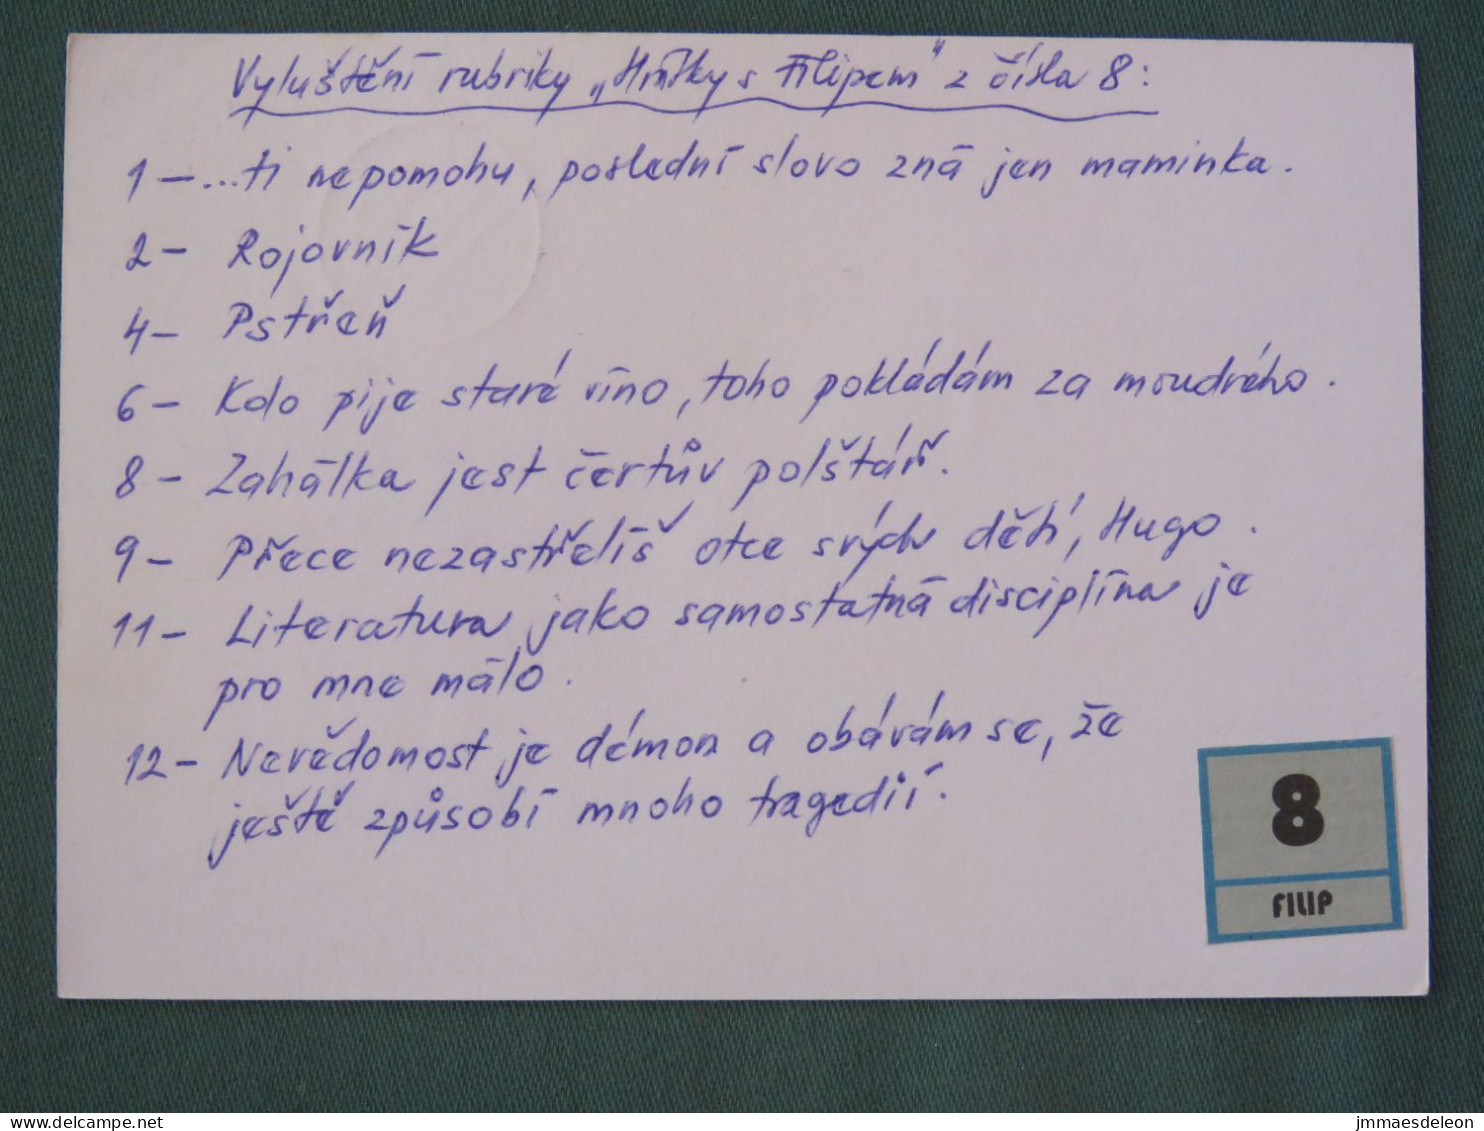 Vyluštění rubriky „Hrátky s Filipem" z čísla 8:
1 – ...ti nepomohu, poslední slovo zná jen maminka.
2 – Rojovník
4 – Pstřeň
6 – Kdo pije staré víno, toho pokládám za moudrého.
8 – Zahálka jest čertův polštář.
9 – Přece nezastřelíš otce svých dětí, Hugo.
11 – Literatura jako samostatná disciplína je
pro mne málo.
12 – Nevědomost je démon a obávám se, že
ještě způsobí mnoho tragedií.
8
FILIP
www.delcampe.net
jmmaesdeleon